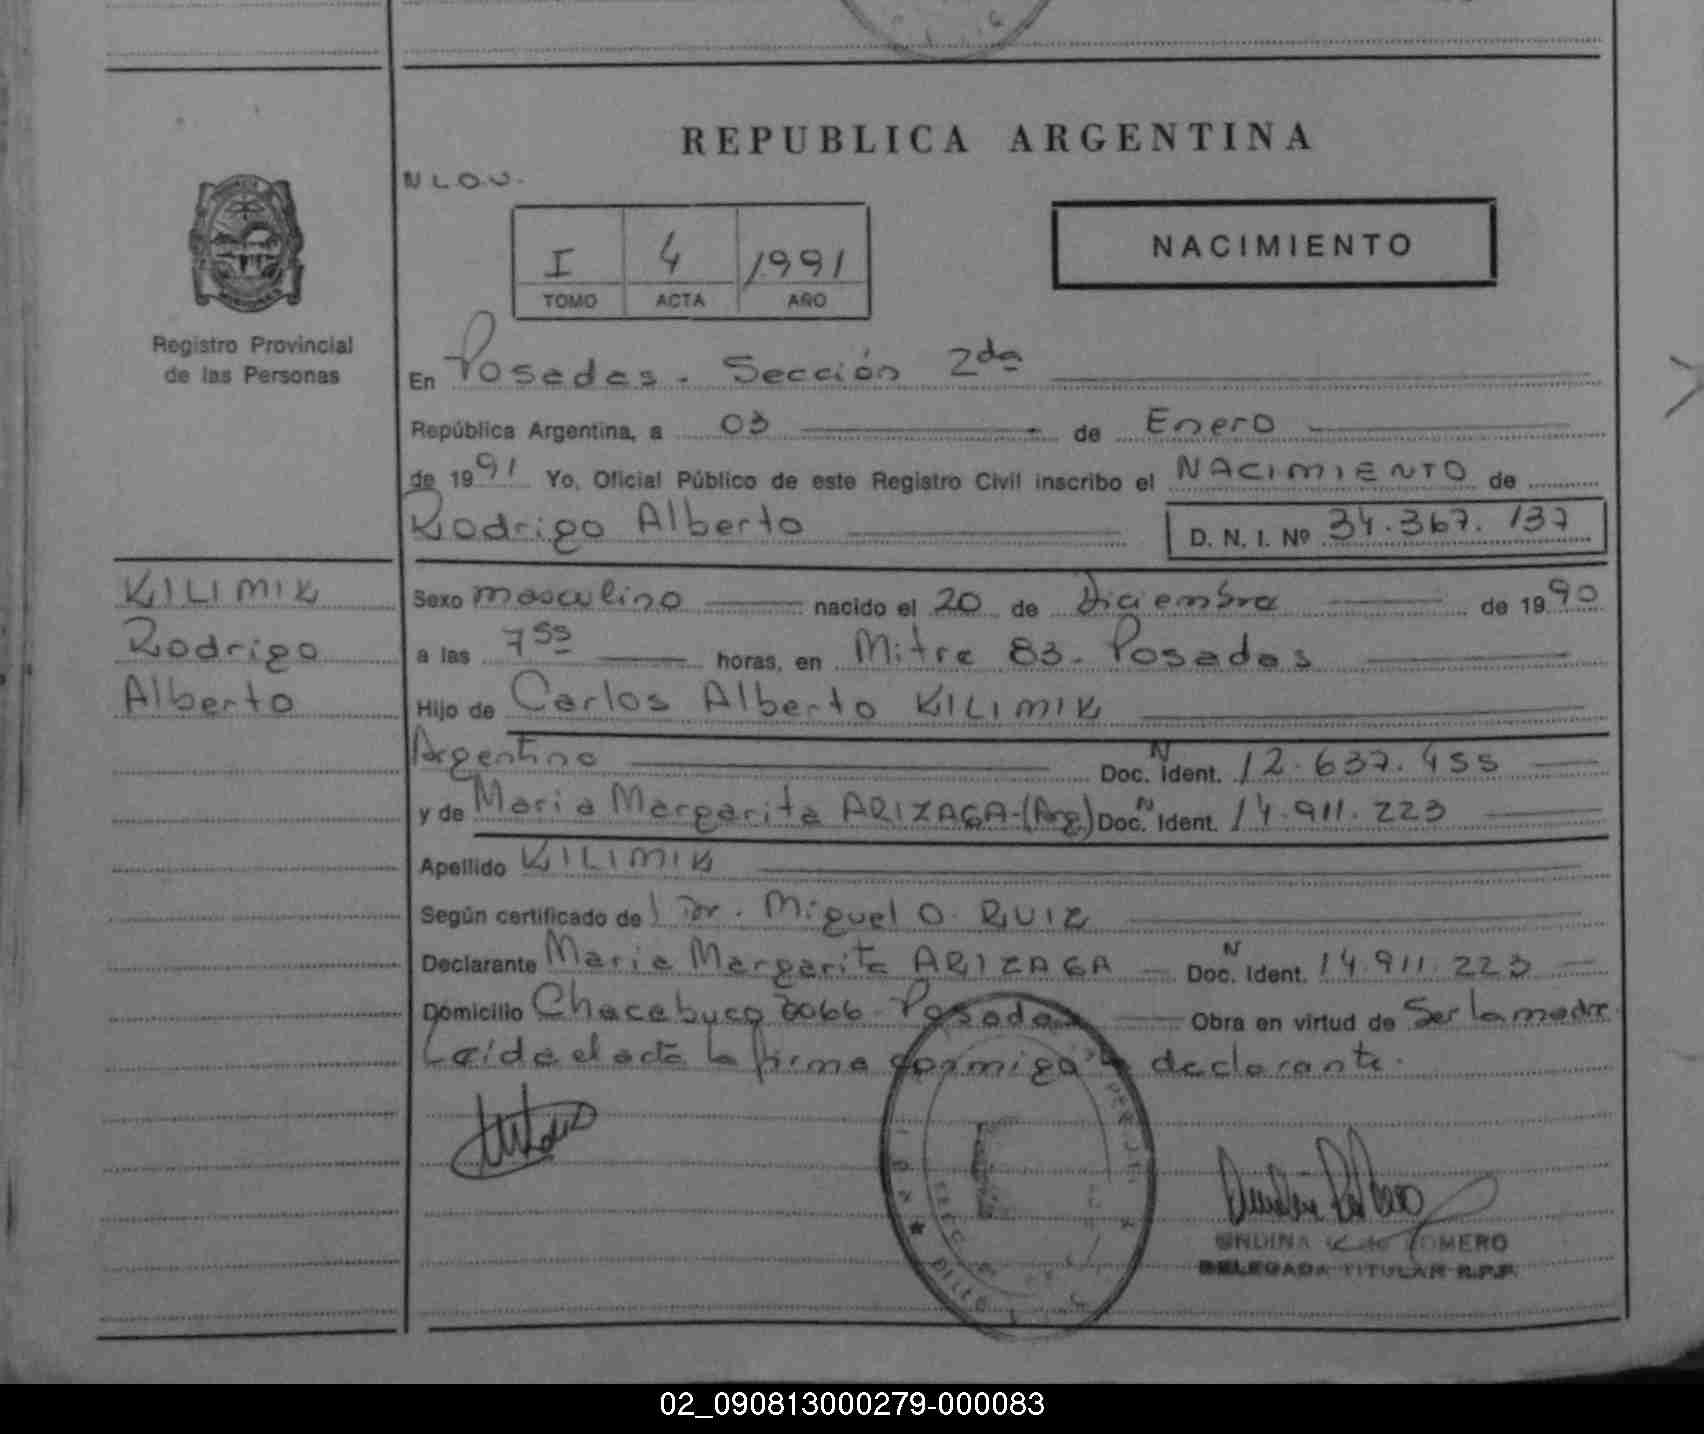 REPUBLICA ARGENTINA
N L O. U.
NACIMIENTO
I 4 1991
TOMO ACTA AÑO
Registro Provincial
de las Personas
En Posadas - Sección 2da
República Argentina, a 03 de Enero
de 1991 Yo, Oficial Público de este Registro Civil inscribo el NACIMIENTO de
Rodrigo Alberto D. N. I. Nº 34.367.137
KILIMIK
Rodrigo
Alberto
Sexo masculino nacido el 20 de Diciembre de 1990
a las 7 55 horas, en Mitre 83 - Posadas
Hijo de Carlos Alberto KILIMIK
Argentino Doc. N Ident. 12.637.455
y de Maria Margarita ARIZAGA-(Arg.) Doc. N Ident. 14.911.223
Apellido KILIMIK
Según certificado del Dr. Miguel O. RUIZ
Declarante Maria Margarita ARIZAGA Doc. N Ident. 14.911.223
Domicilio Chacabuco 6066 - Posadas Obra en virtud de Ser la madre
Leída el acta la firma conmigo la declarante.
ROMERO
DELEGADA TITULAR R.P.P.
02_090813000279-000083